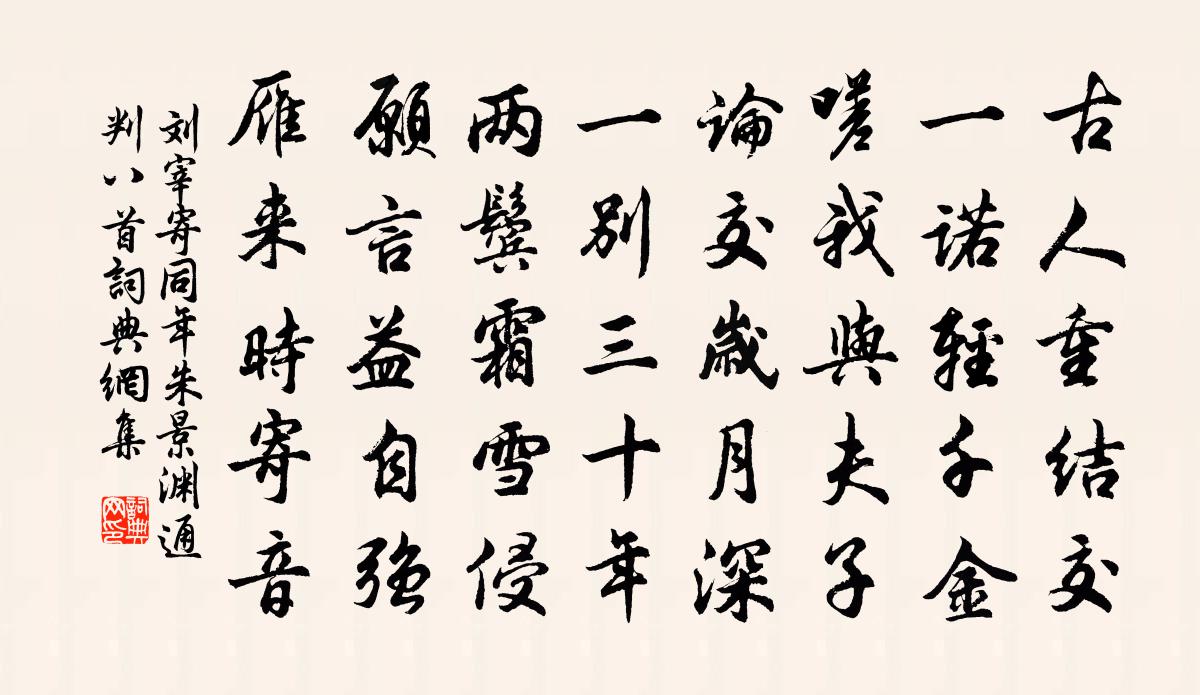 古人重结交
一诺輕千金
嗟我與夫子
論交歲月深
一别三十年
两鬓霜雪侵
願言益自強
雁来時寄音
刘宰寄同年朱景渊通
判八首詞典網集
詞典
网印